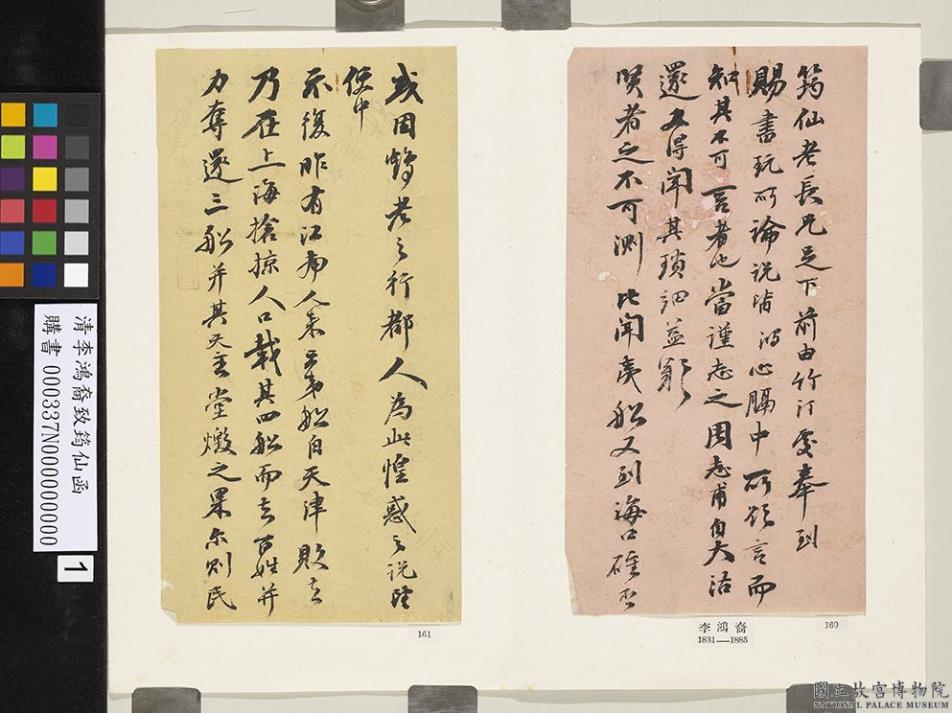 筠仙老長兄足下前由竹汀處奉到
賜書玩所論說皆深心膈中所欲言而
知其不可言者也當謹志之因志甫自大沽
還又得聞其瑣細益歎
賢者之不可測比聞夷船又到海口確否
或因鶴老之行都人為此惶惑之說
使中
示復昨有江南人來云夷船自天津敗去
乃在上海搶掠人口載其四船而去百姓并
力奪還三船并其天主堂燬之果尔則民
160
李鴻裔
1831—1885
161
清李鴻裔致筠仙函
購書 000337N000000000
1
國立故宮博物院
NATIONAL PALACE MUSEUM